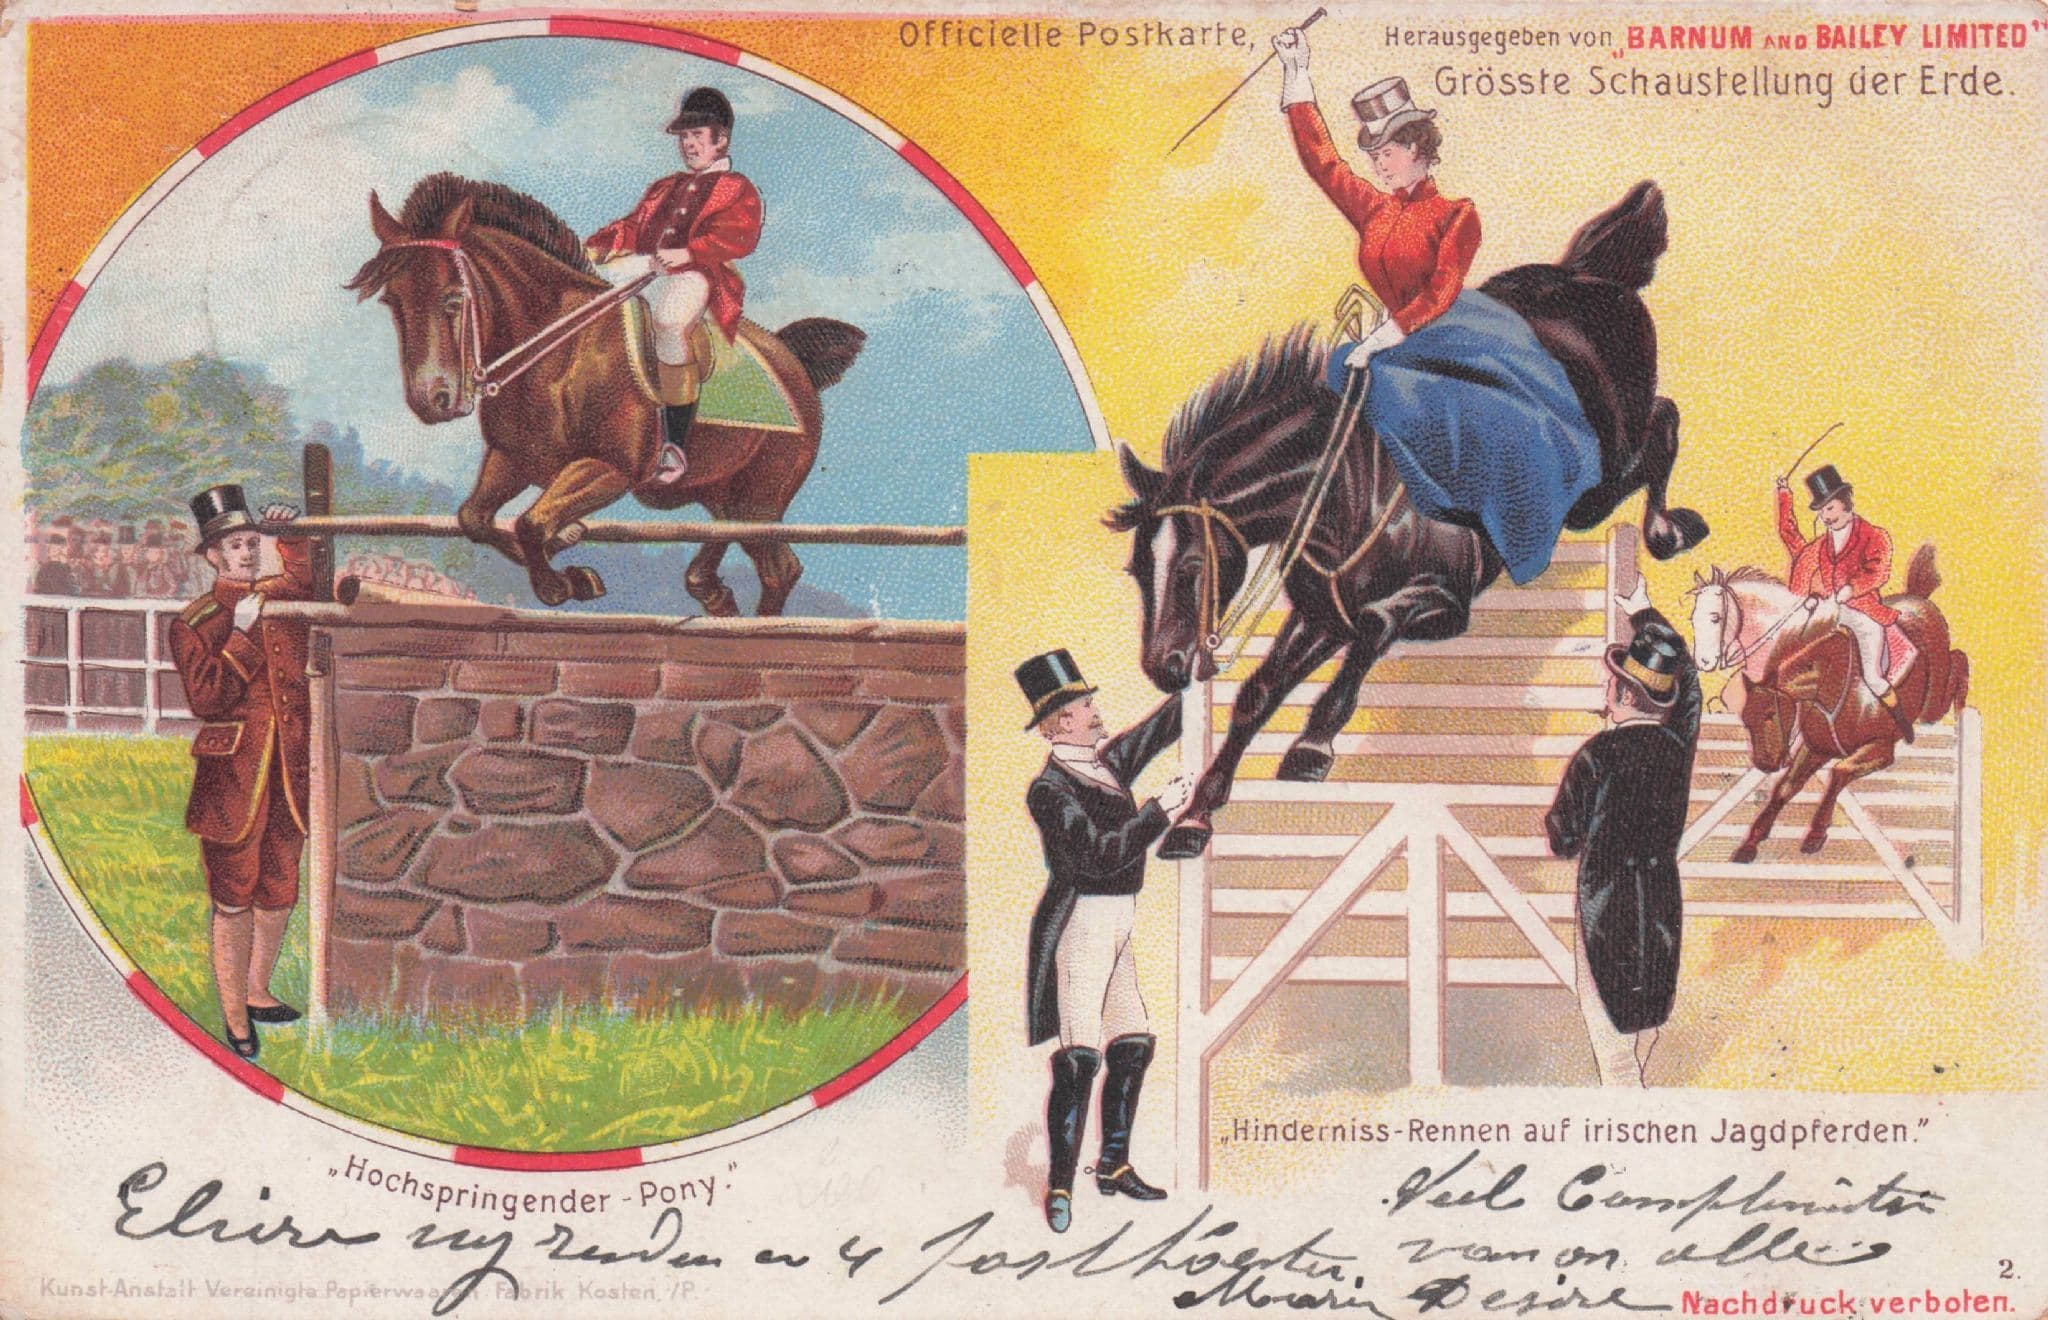 Officielle Postkarte,
Herausgegeben von „BARNUM AND BAILEY LIMITED"
Grösste Schaustellung der Erde.
„Hinderniss-Rennen auf irischen Jagdpferden."
„Hochspringender-Pony."
Viel Complimenten
van on alle
wy zenden er 4 post
Marie Desire
Kunst-Anstalt Vereinigte Papierwaaren Fabrik Kosten, /P.
2.
Nachdruck verboten.